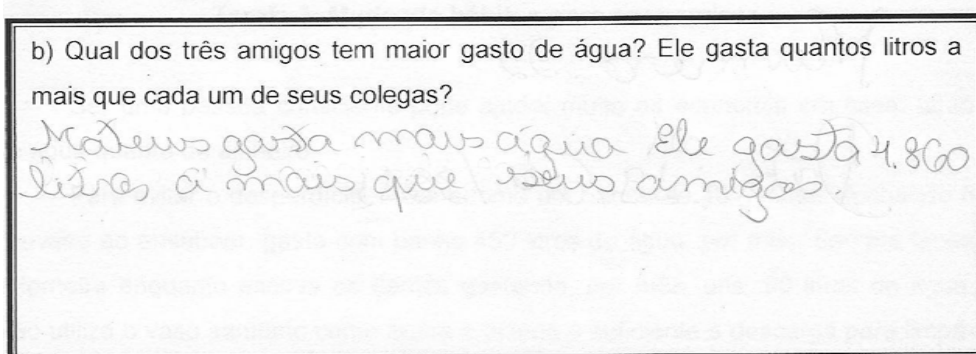 b) Qual dos três amigos tem maior gasto de água? Ele gasta quantos litros a
mais que cada um de seus colegas?
Mateus gasta mais água Ele gasta 4.860
litros a mais que seus amigos